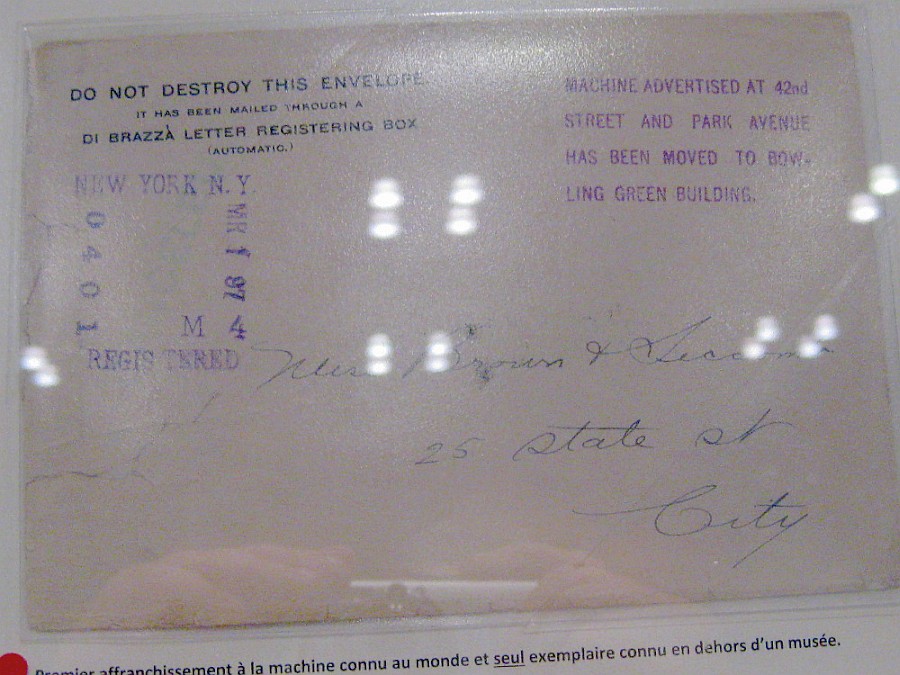 DO NOT DESTROY THIS ENVELOPE.
IT HAS BEEN MAILED THROUGH A
DI BRAZZÀ LETTER REGISTERING BOX
(AUTOMATIC.)
MACHINE ADVERTISED AT 42nd
STREET AND PARK AVENUE
HAS BEEN MOVED TO BOW-
LING GREEN BUILDING.
NEW YORK N.Y.
0401
MR 1 97
M 4
REGISTERED
Brown &
25 State st
City
Premier affranchissement à la machine connu au monde et seul exemplaire connu en dehors d'un musée.